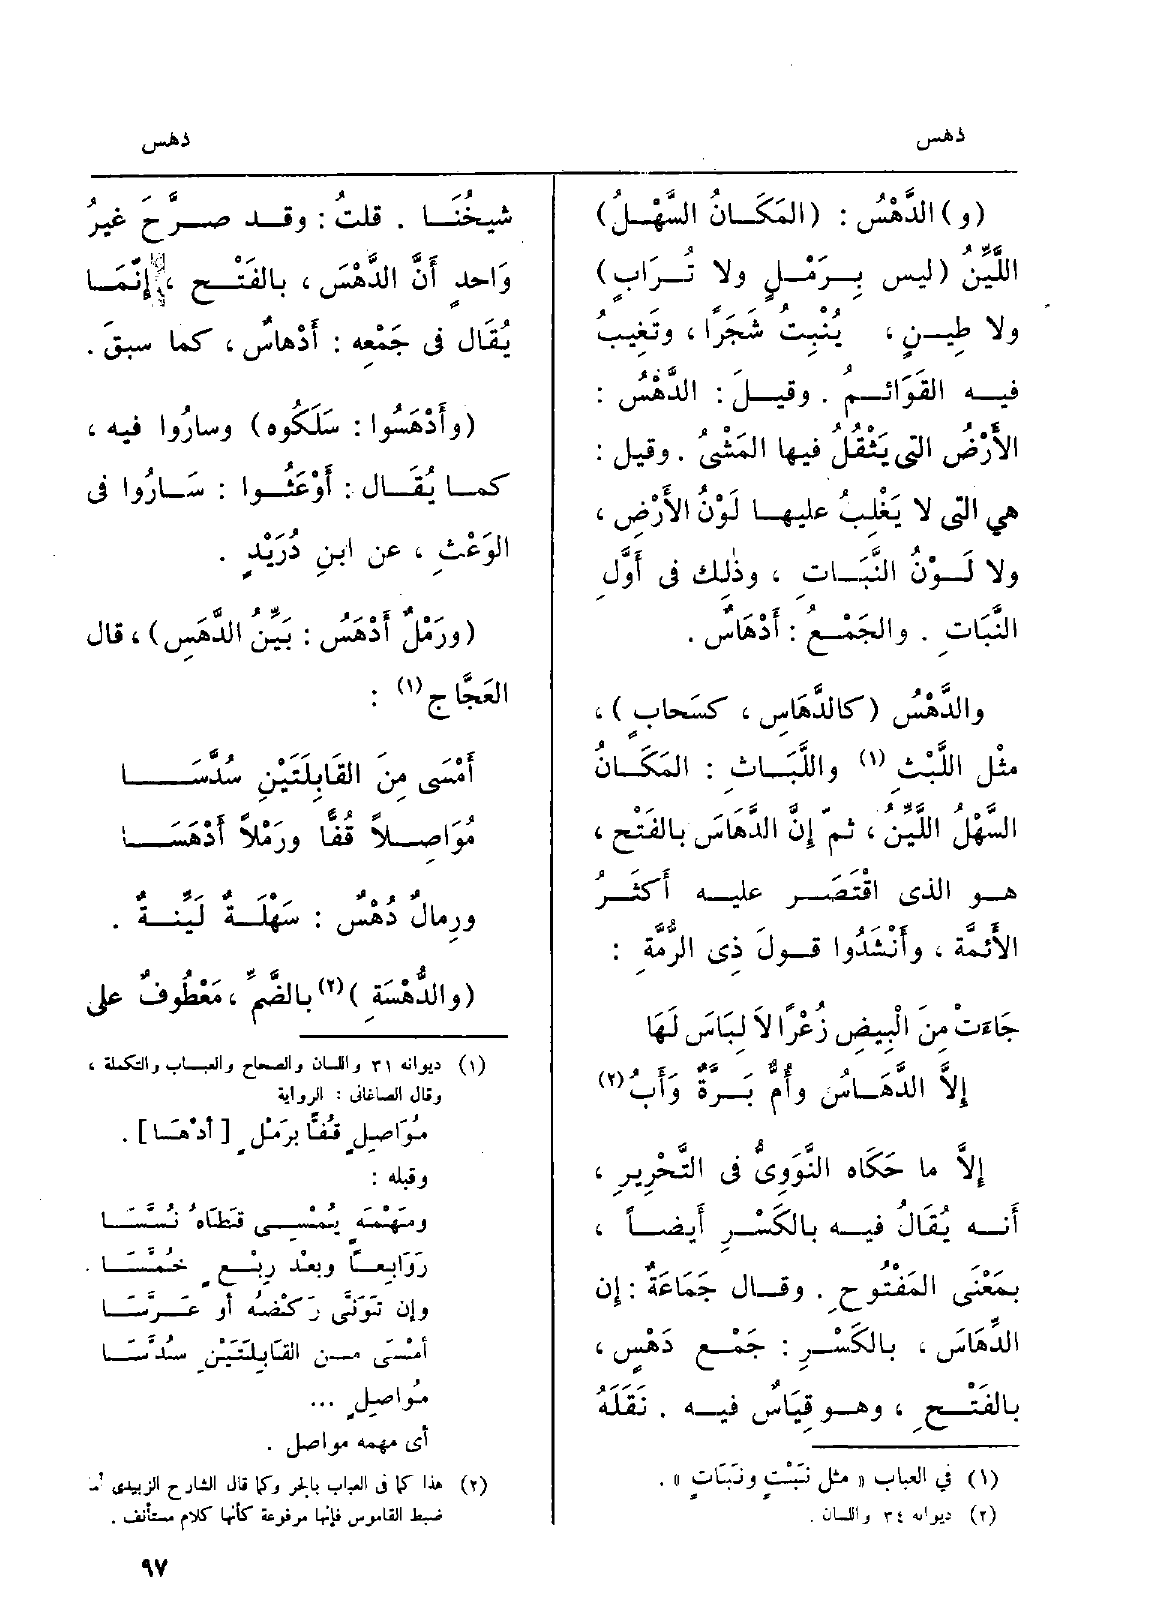 ذهس
ذهس
(و) الدَّهْسُ : (المَكَـانُ السَّهْـلُ)
اللَّيِّنُ (ليس بِـرَمْـلٍ ولا تُـرَابٍ)
ولا طِيـنٍ ، يُنْبِتُ شَجَرًا ، وتَغِيبُ
فيـه القَوَائـمُ . وقيـلَ : الدَّهْسُ :
الأَرْضُ التى يَثْقُلُ فيها المَشْىُ . وقيل :
هي التى لا يَغْلِبُ عليهـا لَوْنُ الأَرْضِ ،
ولا لَـوْنُ النَّبَـاتِ ، وذٰلِك فى أَوَّلِ
النَّبَاتِ . والجَمْـعُ : أَدْهَاسٌ .
والدَّهْسُ (كالدَّهَاسِ ، كسَحابٍ) ،
مثْل اللَّبْثِ (١) واللَّبَـاثِ : المَكَـانُ
السَّهْلُ اللَّيِّنُ ، ثمّ إِنَّ الدَّهَاسَ بالفَتْح ،
هـو الذى اقْتَصَـر عليـه أَكثَـرُ
الأَئمَّة ، وأَنْشَدُوا قـولَ ذِى الرُّمَّةِ :
جَاءَتْ مِنَ الْبِيضِ زُعْرًا لاَ لِبَاسَ لَهَا
إِلاَّ الدَّهَـاسُ وأُمٌّ بَـرَّةٌ وَأَبُ (٢)
إِلاَّ ما حَكَاه النَّوَوِىُّ فى التَّحْرِيرِ ،
أَنـه يُقَالُ فيـه بالكَسْـرِ أَيضـاً ،
بمَعْنَى المَفْتُوحِ . وقـال جَمَاعَةٌ : إِن
الدِّهَاسَ ، بالكَسْـرِ : جَمْـع دَهْسٍ ،
بالفَتْـحِ ، وهـو قِيَاسٌ فيـه . نَقَلَهُ
(١) في العباب « مثل نَبْتٍ ونَبَاتٍ » .
(٢) ديوانه ٣٤ واللسان .
شيخُنَـا . قلتُ : وقـد صـرَّحَ غيرُ
وَاحدٍ أَنَّ الدَّهْسَ ، بالفَتْـح ، إِنَّمَـا
يُقَال فى جَمْعِه : أَدْهاسٌ ، كما سبقَ .
(وأَدْهَسُوا : سَلَكُوه) وسارُوا فيه ،
كمـا يُقَـال : أَوْعَثُـوا : سَـارُوا فى
الوَعْثِ ، عن ابنِ دُرَيْدٍ .
(ورَمْلٌ أَدْهَسُ : بَيِّنُ الدَّهَسِ) ، قال
العَجَّاج (١) :
أَمْسَى مِنَ القَابِلَتَيْنِ سُدَّسَـا
مُوَاصِـلاً قُفًّا ورَمْلاً أَدْهَسَـا
ورِمالٌ دُهْسٌ : سَهْلَـةٌ لَيِّنـةٌ .
(والدُّهْسَةِ) (٢) بالضَّمِّ ، مَعْطُوفٌ على
(١) ديوانه ٣١ واللسان والصحاح والعبـاب والتكملة ،
وقال الصاغانى : الرواية
مُوَاصِلٍ قُفًّا بِرَمْلٍ [أدْهَسَا] .
وقبله :
ومَهْمَهٍ يُمْسِـى قَطَاهُ نُسَّسَـا
رَوَابِعـاً وبعْد رِبْـعٍ خُمَّسَـا .
وإن تَوَنَّى رَكْضُهُ أو عَـرَّسَـا
أمْسَى مـن القَابِلَتَيْنِ سُدَّسَـا
مُواصِلٍ ...
أى مهمه مواصل .
(٢) هذا كما فى العباب بالجر وكما قال الشارح الزبيدى أما
ضبط القاموس فإنها مرفوعة كأنها كلام مستأنف .
٩٧